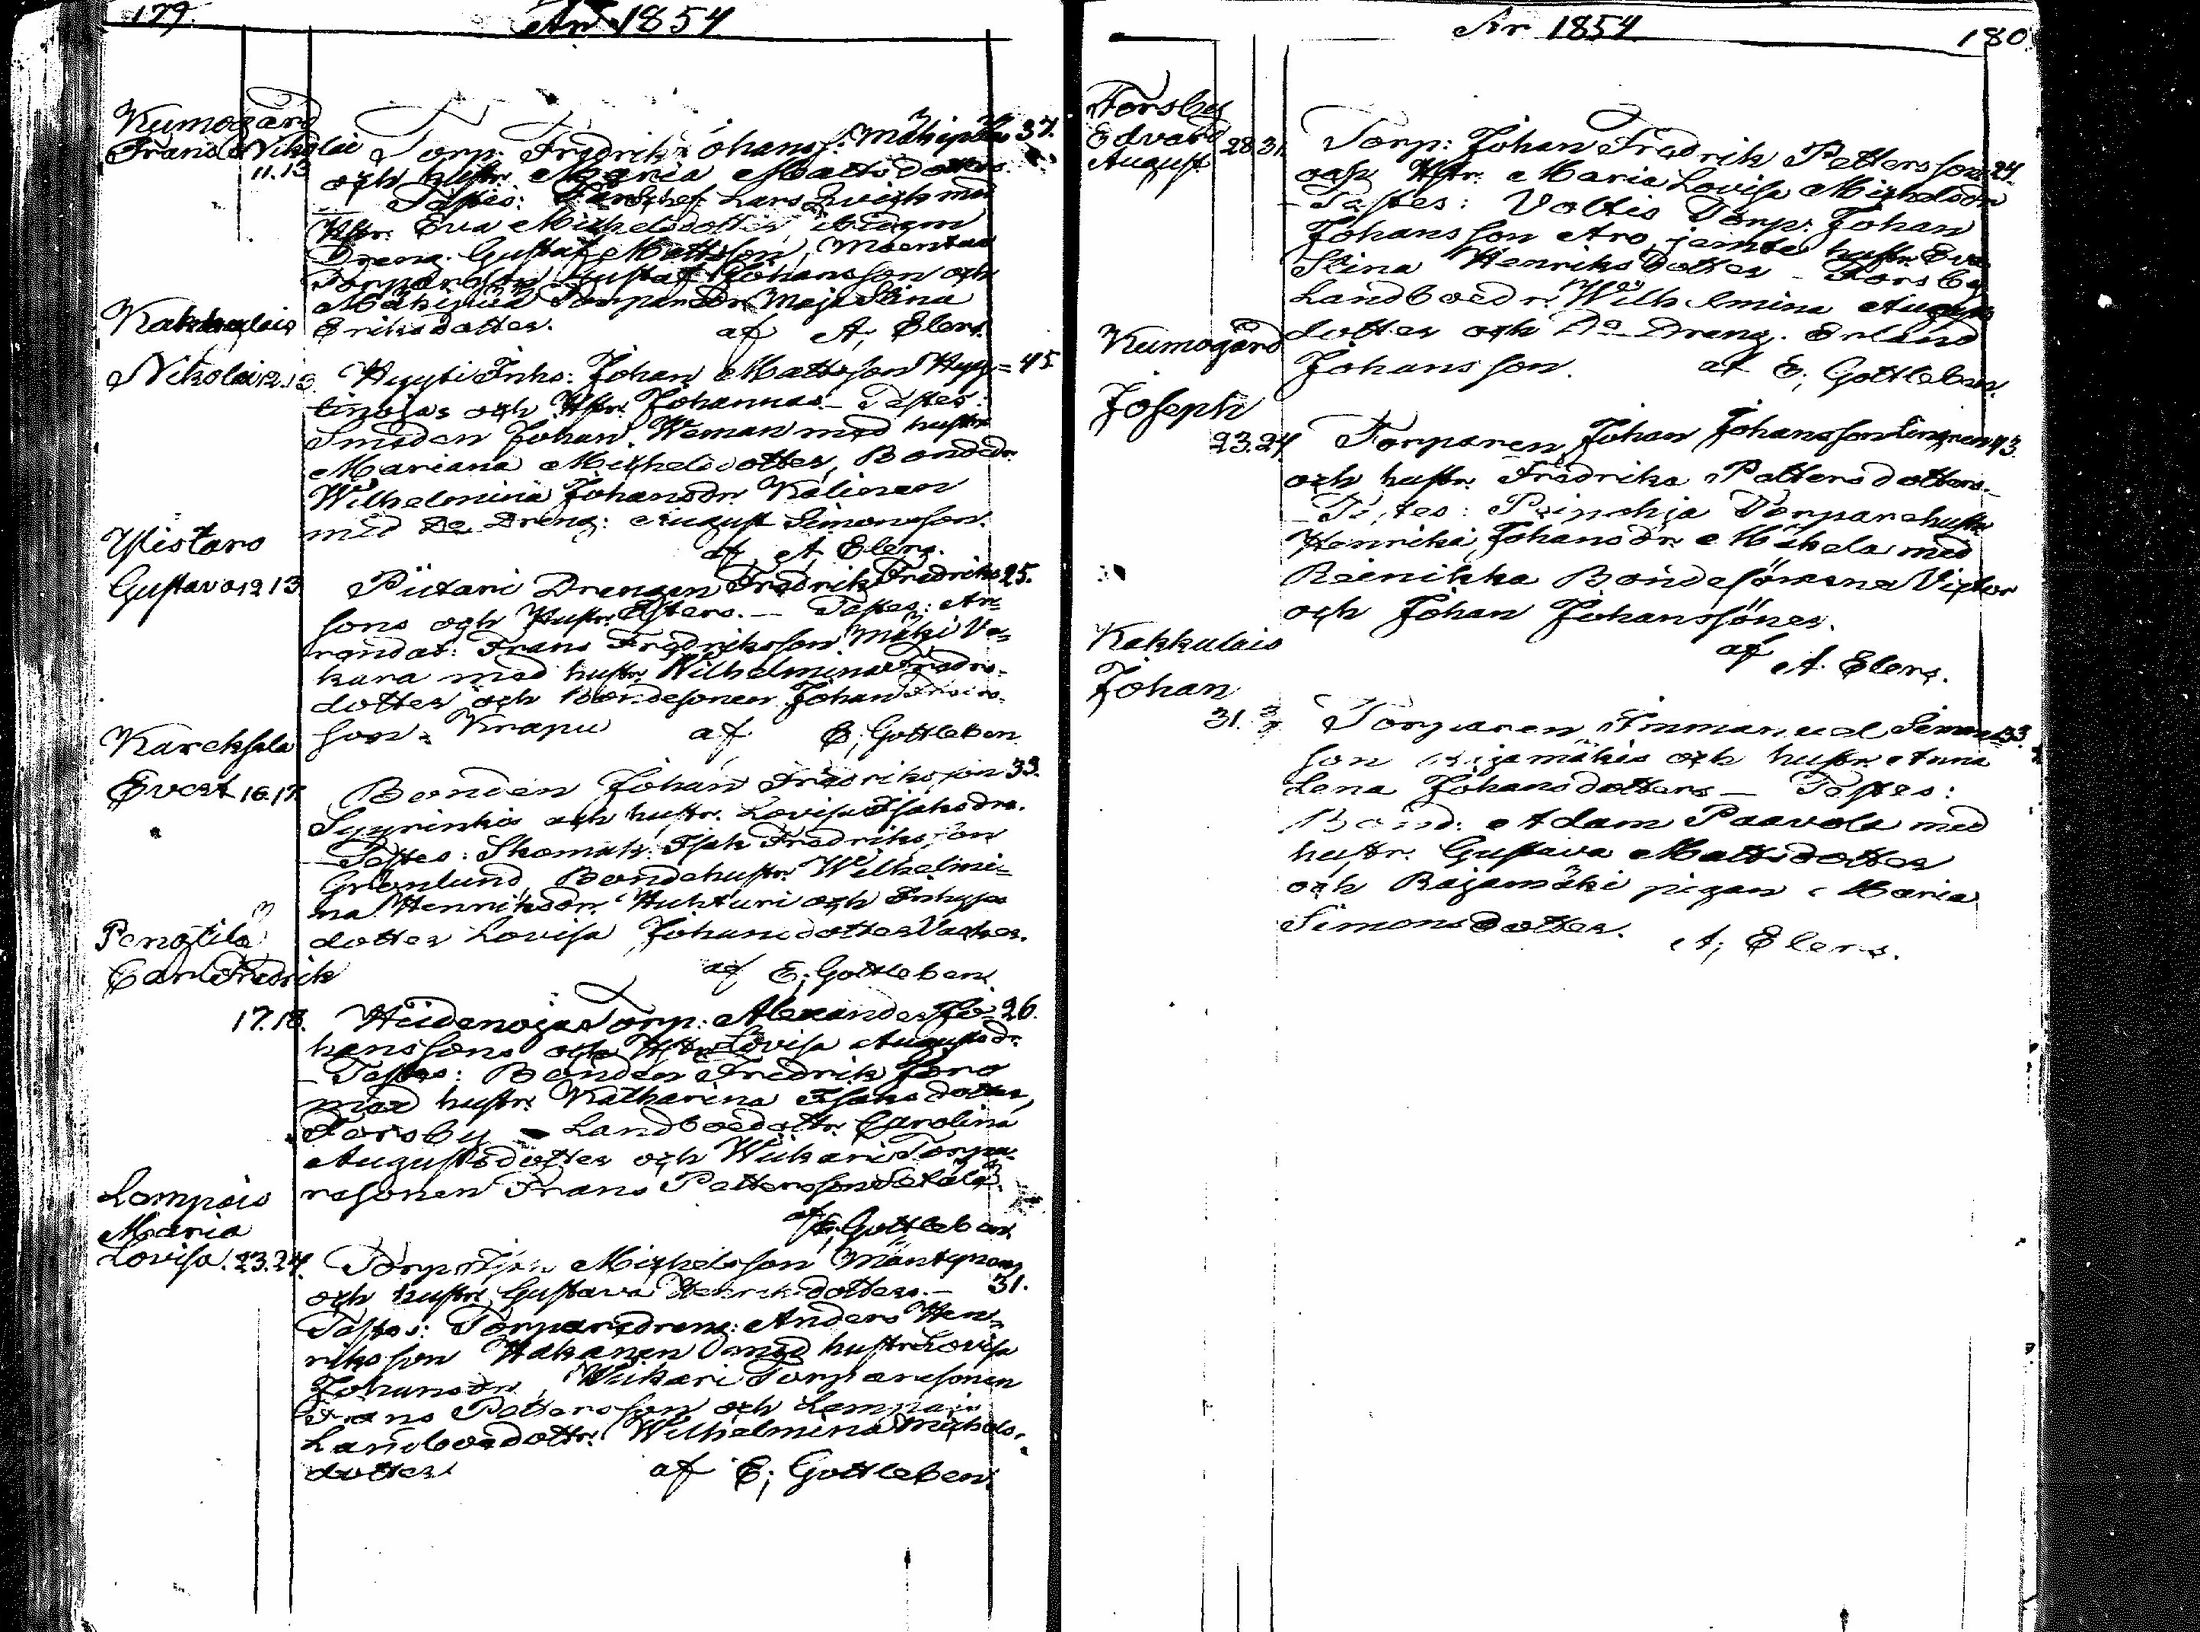 179.
År 1854
Kumogård
Frans Nikolai
11.13
Torp: Fredrik Johanss: 37.
och hustr. Maria Mattsdotters.
Testes: Lars med
Hstr. Eva Michelsdotter
Dreng. Gustaf Mattsson,
Torparson Gustaf Johansson och
Torparedr. Maja Stina
Eriksdotter. af A; Elers.
Kakkulais
Nikolai 12.13.
Hyyti Inhs: Johan Mattsson Hyy= 45
tinojas och Hstr. Johannas. – Testes:
Smeden Johan Weman med hustr.
Mariana Michelsdotter, Bondedr.
Wilhelmina Johansdr. Kalinen
med Do Dreng: August Simonsson.
af A Elers.
Ylistaro
Gustava 12.13
Piitari Drengen Fredrik Fredriks 25.
sons och Hustr. Esters. — Testes: Ar-
rendat: Frans Fredriksson Mäki Ve-
kara med hustr. Wilhelmina Fredriks-
dotter och Bondesonen Johan
son Krapu af E; Gottleben
Kareksela
Evert 16.17.
Bonden Johan Fredriksson 33.
Syyrinkis och hustr. Lovisa Isaksdrs.
– Testes: Skomak: Isak Fredriksson
Grönlund, Bondehustr. Wilhelmi-
na Henriksdr. Huhturi och Inhyses
dotter Lovisa Johansdotter
af E; Gottleben.
Penätilä
Carl Fredrik
17.18.
Hiidenoja Torp: Alexander Jo- 26.
hanssons och Hstr. Lovisa Augustsdr.
– Testes: Bonden Fredrik Jaro
med hustr. Katharina Isaksdotter,
Forsby – Landboedottr. Carolina
Augustsdotter och Wiikari Torpa-
resonen Frans Pettersson Setälä.
af E; Gottleben
Lompois
Maria
Lovisa. 23.24.
Torp: Isak Michelsson Mäntynens
och hustr. Gustava Henriksdotters. – 31.
Testes: Torparedreng: Anders Hen-
riksson Hakanen med hustr. Lovisa
Johansdr, Wiikari Torparesonen
Frans Pettersson och Lompois
Landboedottr. Wilhelmina Michels-
dotter. af E; Gottleben.
År 1854
180
Forsby
Edvard
August
28.31.
Torp: Johan Fredrik Petterssons 24.
och Hstr. Maria Lovisa Michelsdr
– Testes: Voltis Torp: Johan
Johansson Aro jemte hustr. Eva
Stina Henriksdotter – Forsby
Landboedr. Wilhelmina Augusts
dotter och Do Dreng. Erland
Johansson. af E; Gottleben.
Kumogård
Joseph
23.24
Torparen Johan Johansson 43.
och hustr. Fredrika Pettersdotters.
– Testes: Torparehustr.
Henrika Johansdr. Mikola med
Reinikka Bondesönerne Victor
och Johan Johanssöner.
af A. Elers.
Kakkulais
Johan
31.
Torparen Immanuel Simons 33.
son Rajamäkis och hustr. Anna
Lena Johansdotters – Testes:
Bond: Adam Paavola med
hustr. Gustava Mattsdotter
och Rajamäki pigan Maria
Simonsdotter. A; Elers.